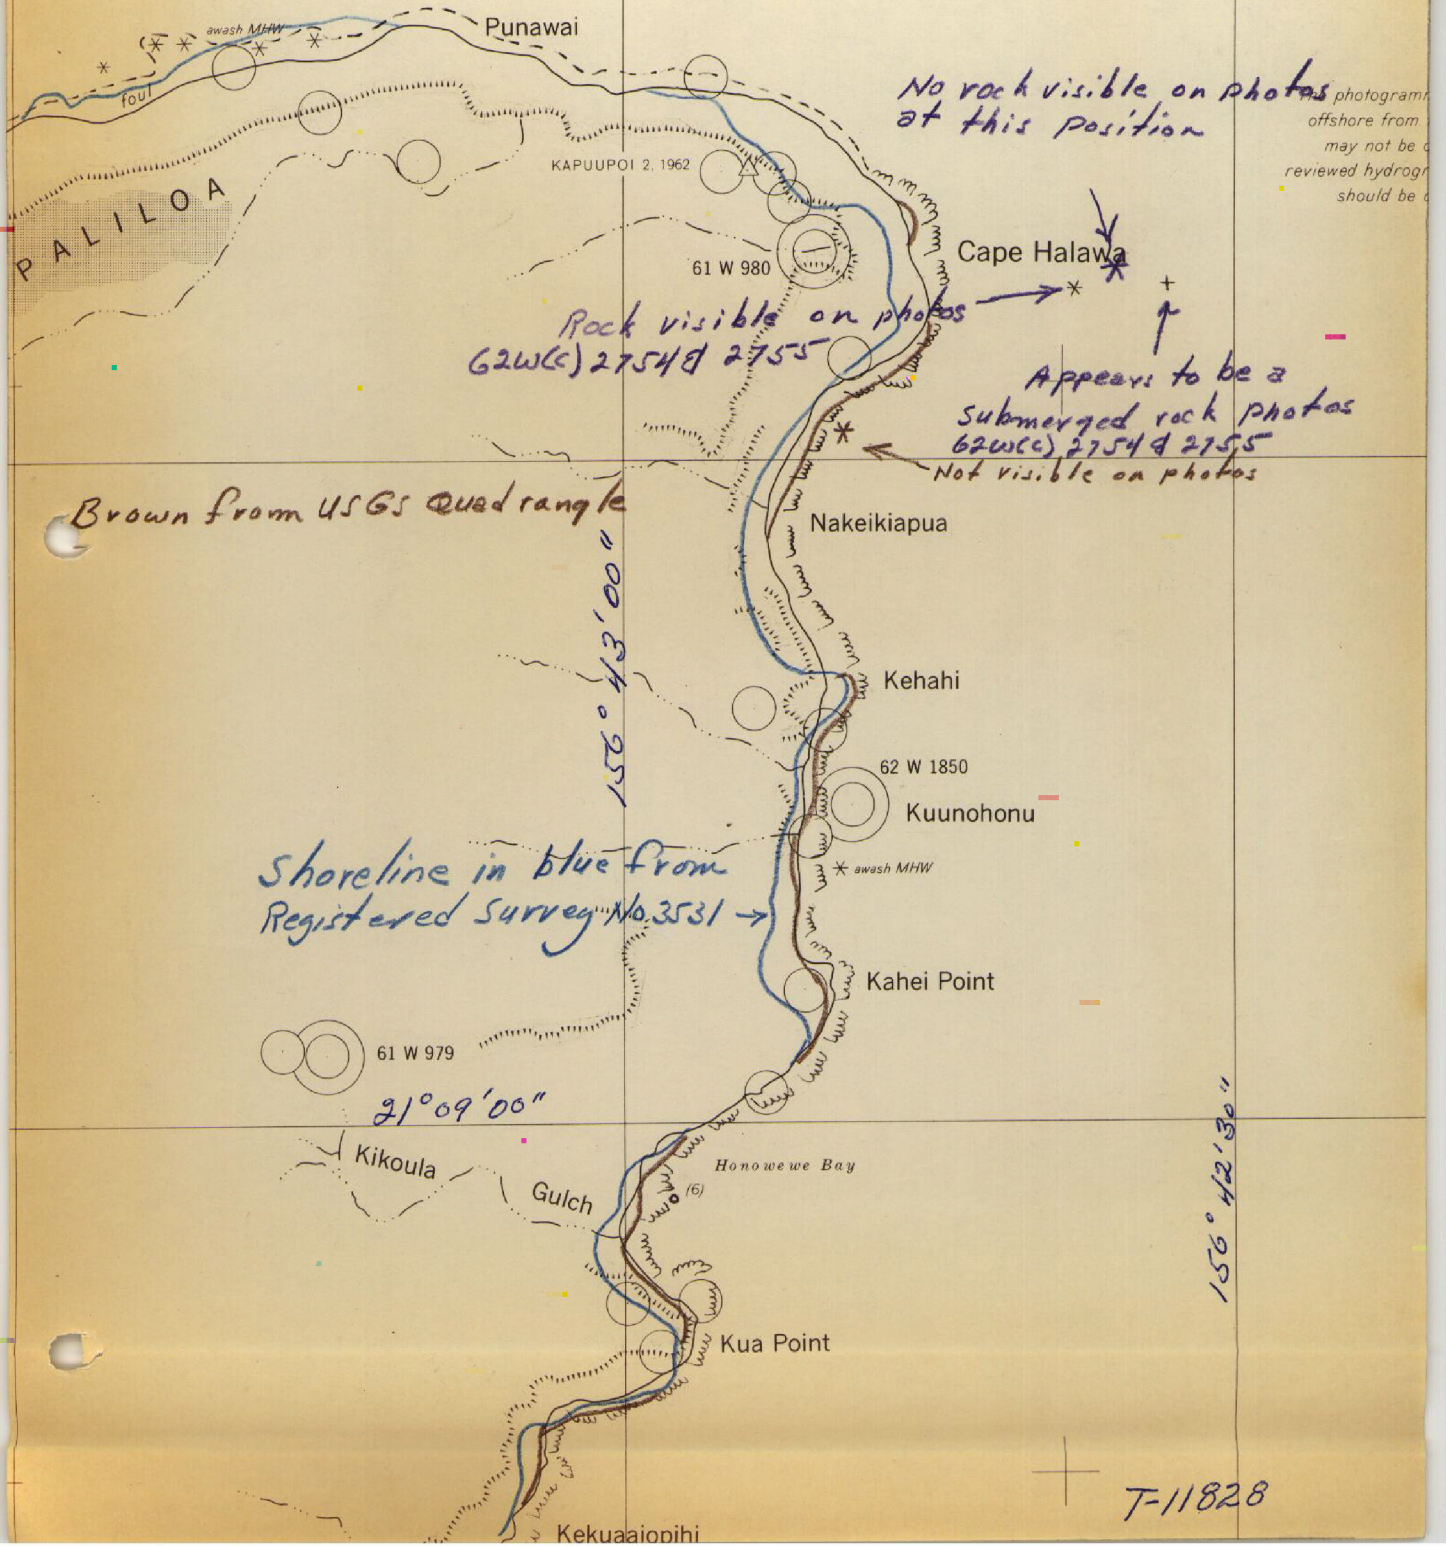 awash MHW
Punawai
foul
No rock visible on photos
at this position
photogramm
offshore from
may not be
reviewed hydrogr
should be
KAPUUPOI 2, 1962
PALILOA
Cape Halawa
61 W 980
Rock visible on photos
62W(C) 2754 & 2755
Appears to be a
submerged rock photos
62W(C) 2754 & 2755
Not visible on photos
Brown from USGS Quadrangle
Nakeikiapua
156° 43' 00"
Kehahi
62 W 1850
Kuunohonu
Shoreline in blue from
awash MHW
Registered Survey No. 3531
Kahei Point
61 W 979
21° 09' 00"
156° 42' 30"
Kikoula
Gulch
Honowewe Bay
(6)
Kua Point
T-11828
Kekuaaiopihi